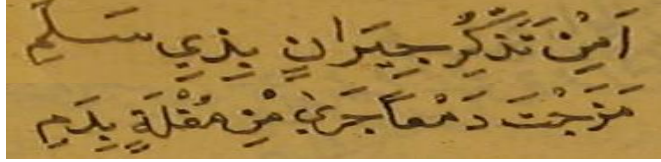 اَمِنْ تَذَكُّرِ جِيرَانٍ بِذِي سَلَمِ
مَزَجْتَ دَمْعًا جَرَىٰ مِنْ مُقْلَةٍ بِدَمِ